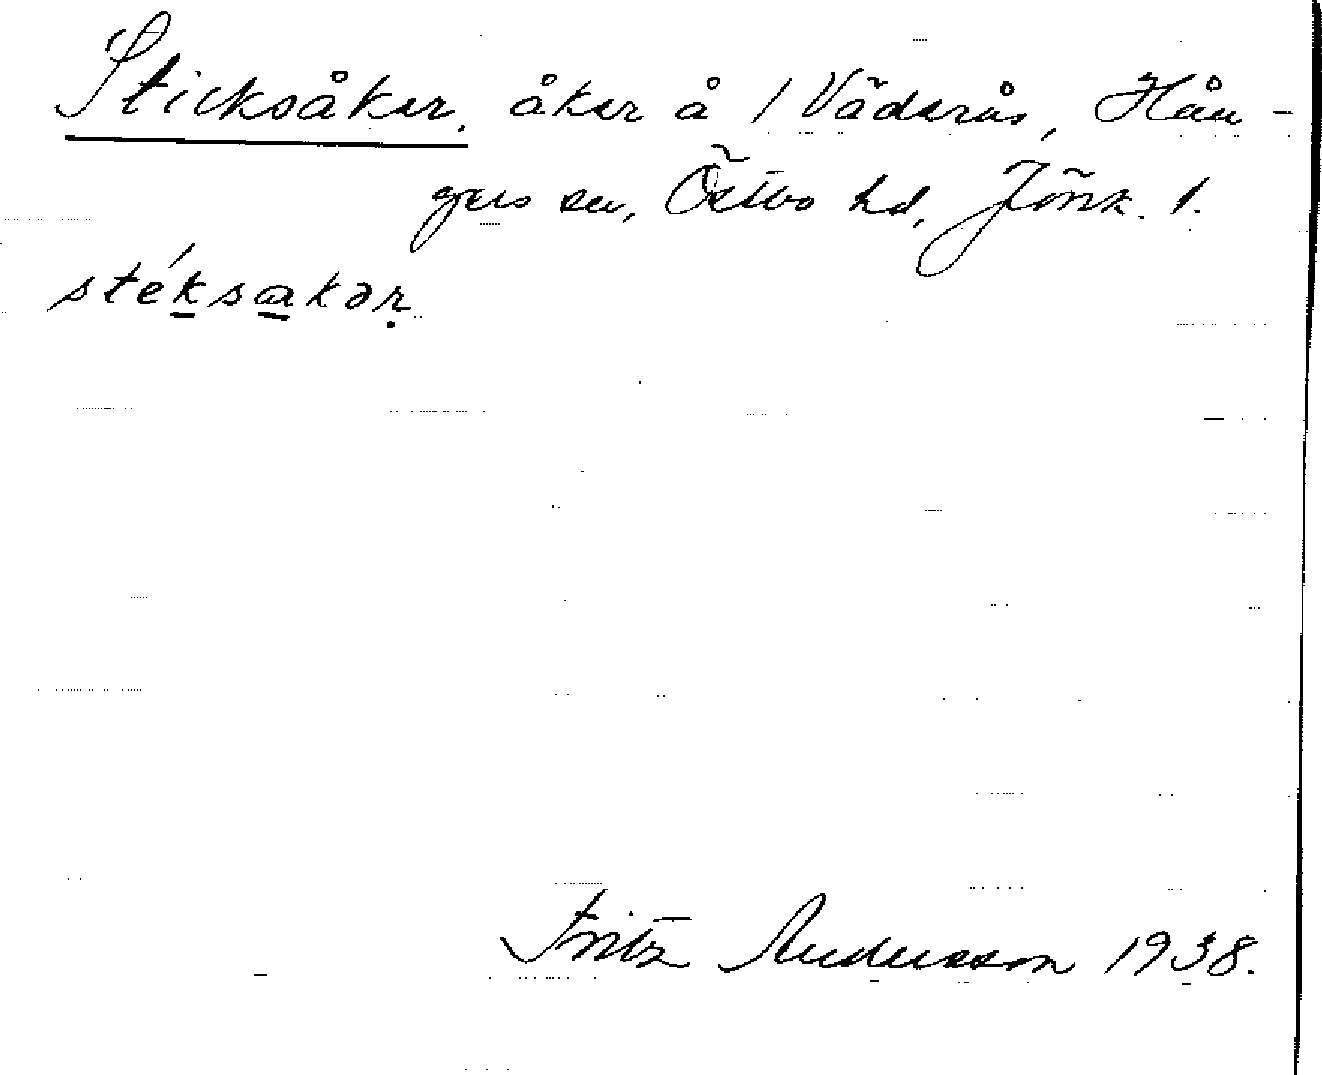 Sticksåker, åker å 1 Väderås, Hån-
gers sn, Östbo hd, Jönk. l.
stéksakər
Fritz Andersson 1938.